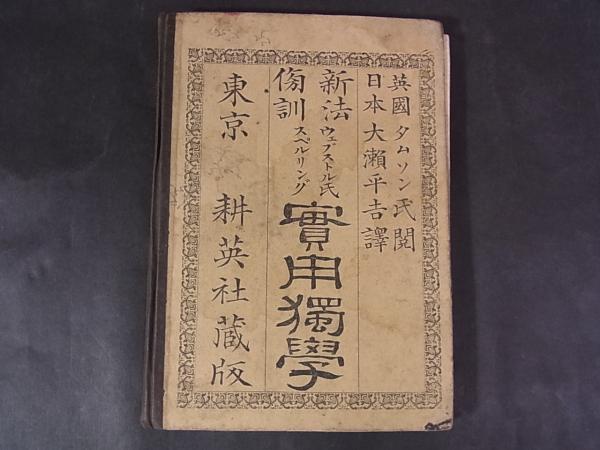 英國タムソン氏閲
日本大瀬平吉譯
新法
傍訓
ウェブストル氏
スペルリング
實用獨學
東京 耕英社蔵版